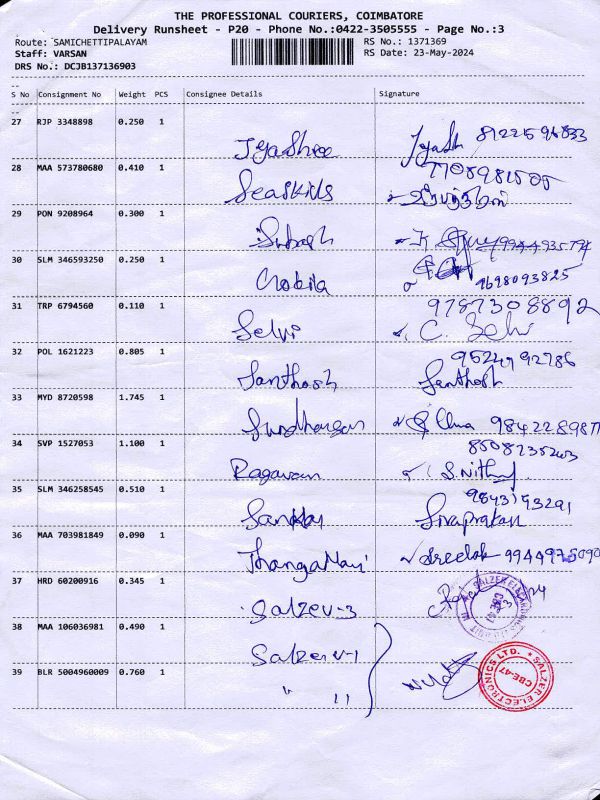 THE PROFESSIONAL COURIERS, COIMBATORE
Delivery Runsheet - P20 - Phone No.:0422-3505555 - Page No.:3
Route: SAMICHETTIPALAYAM RS No.: 1371369
Staff: VARSAN RS Date: 23-May-2024
DRS No.: DCJB137136903
S No Consignment No Weight PCS Consignee Details Signature
27 RJP 3348898 0.250 1 JeyaShree
28 MAA 573780680 0.410 1 SeaSkills
29 PON 9208964 0.300 1 Subash
30 SLM 346593250 0.250 1 9698093825
31 TRP 6794560 0.110 1 Selvi 9787308892
C. Selvi
32 POL 1621223 0.805 1 Santhosh Santhosh
33 MYD 8720598 1.745 1
34 SVP 1527053 1.100 1 Ragavan
35 SLM 346258545 0.510 1 Sivaprakash
36 MAA 703981849 0.090 1 ThangaMari
37 HRD 60200916 0.345 1 Salzer-3
38 MAA 106036981 0.490 1 Salzer-1
39 BLR 5004960009 0.760 1 " "
SALZER ELECTRONICS LTD.
CBE-47